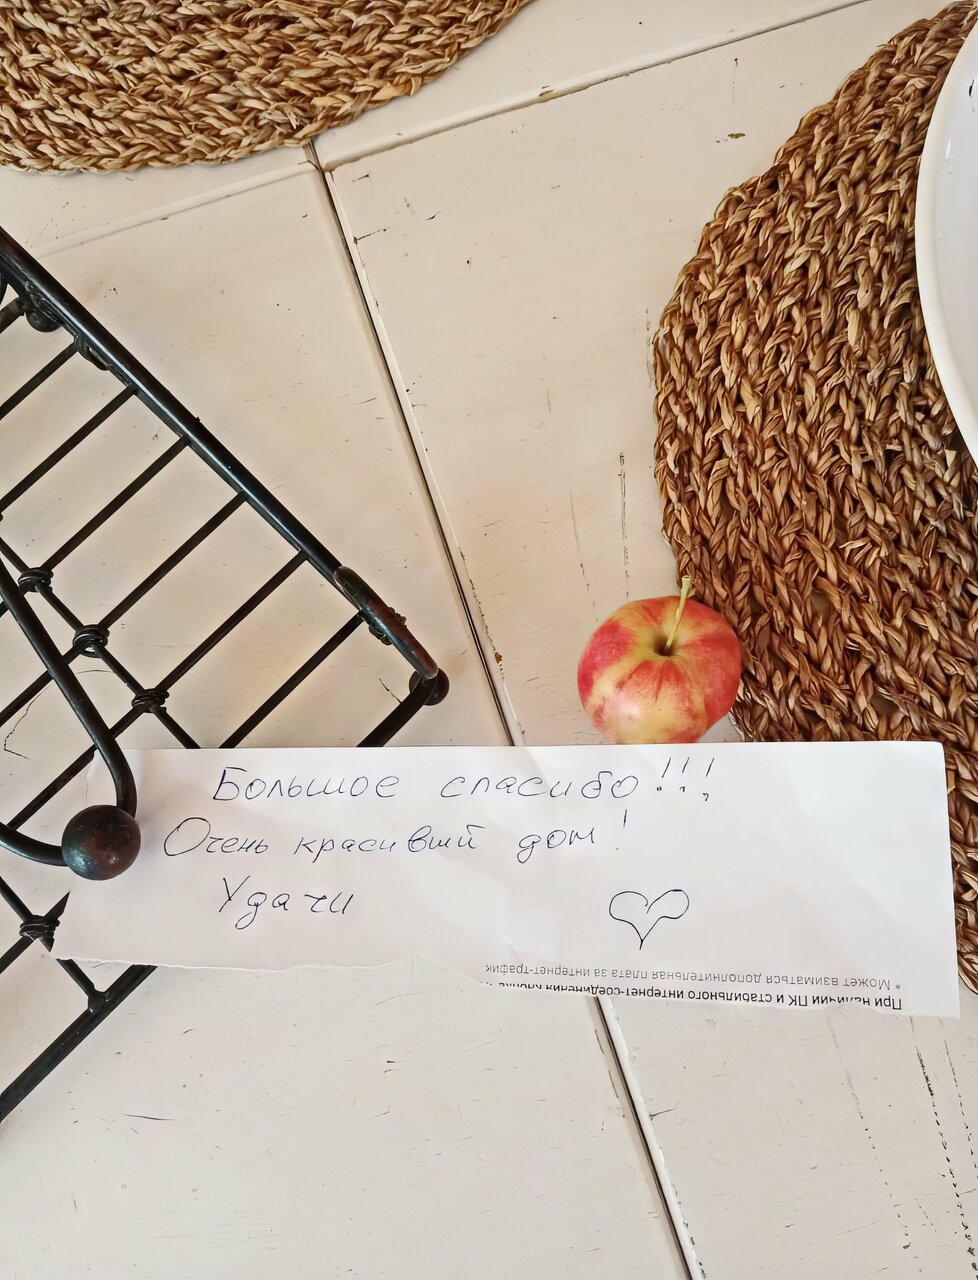 Большое спасибо!!!
Очень красивый дом!
Удачи
* Может взиматься дополнительная плата за интернет-трафик
При наличии ПК и стабильного интернет-соединения